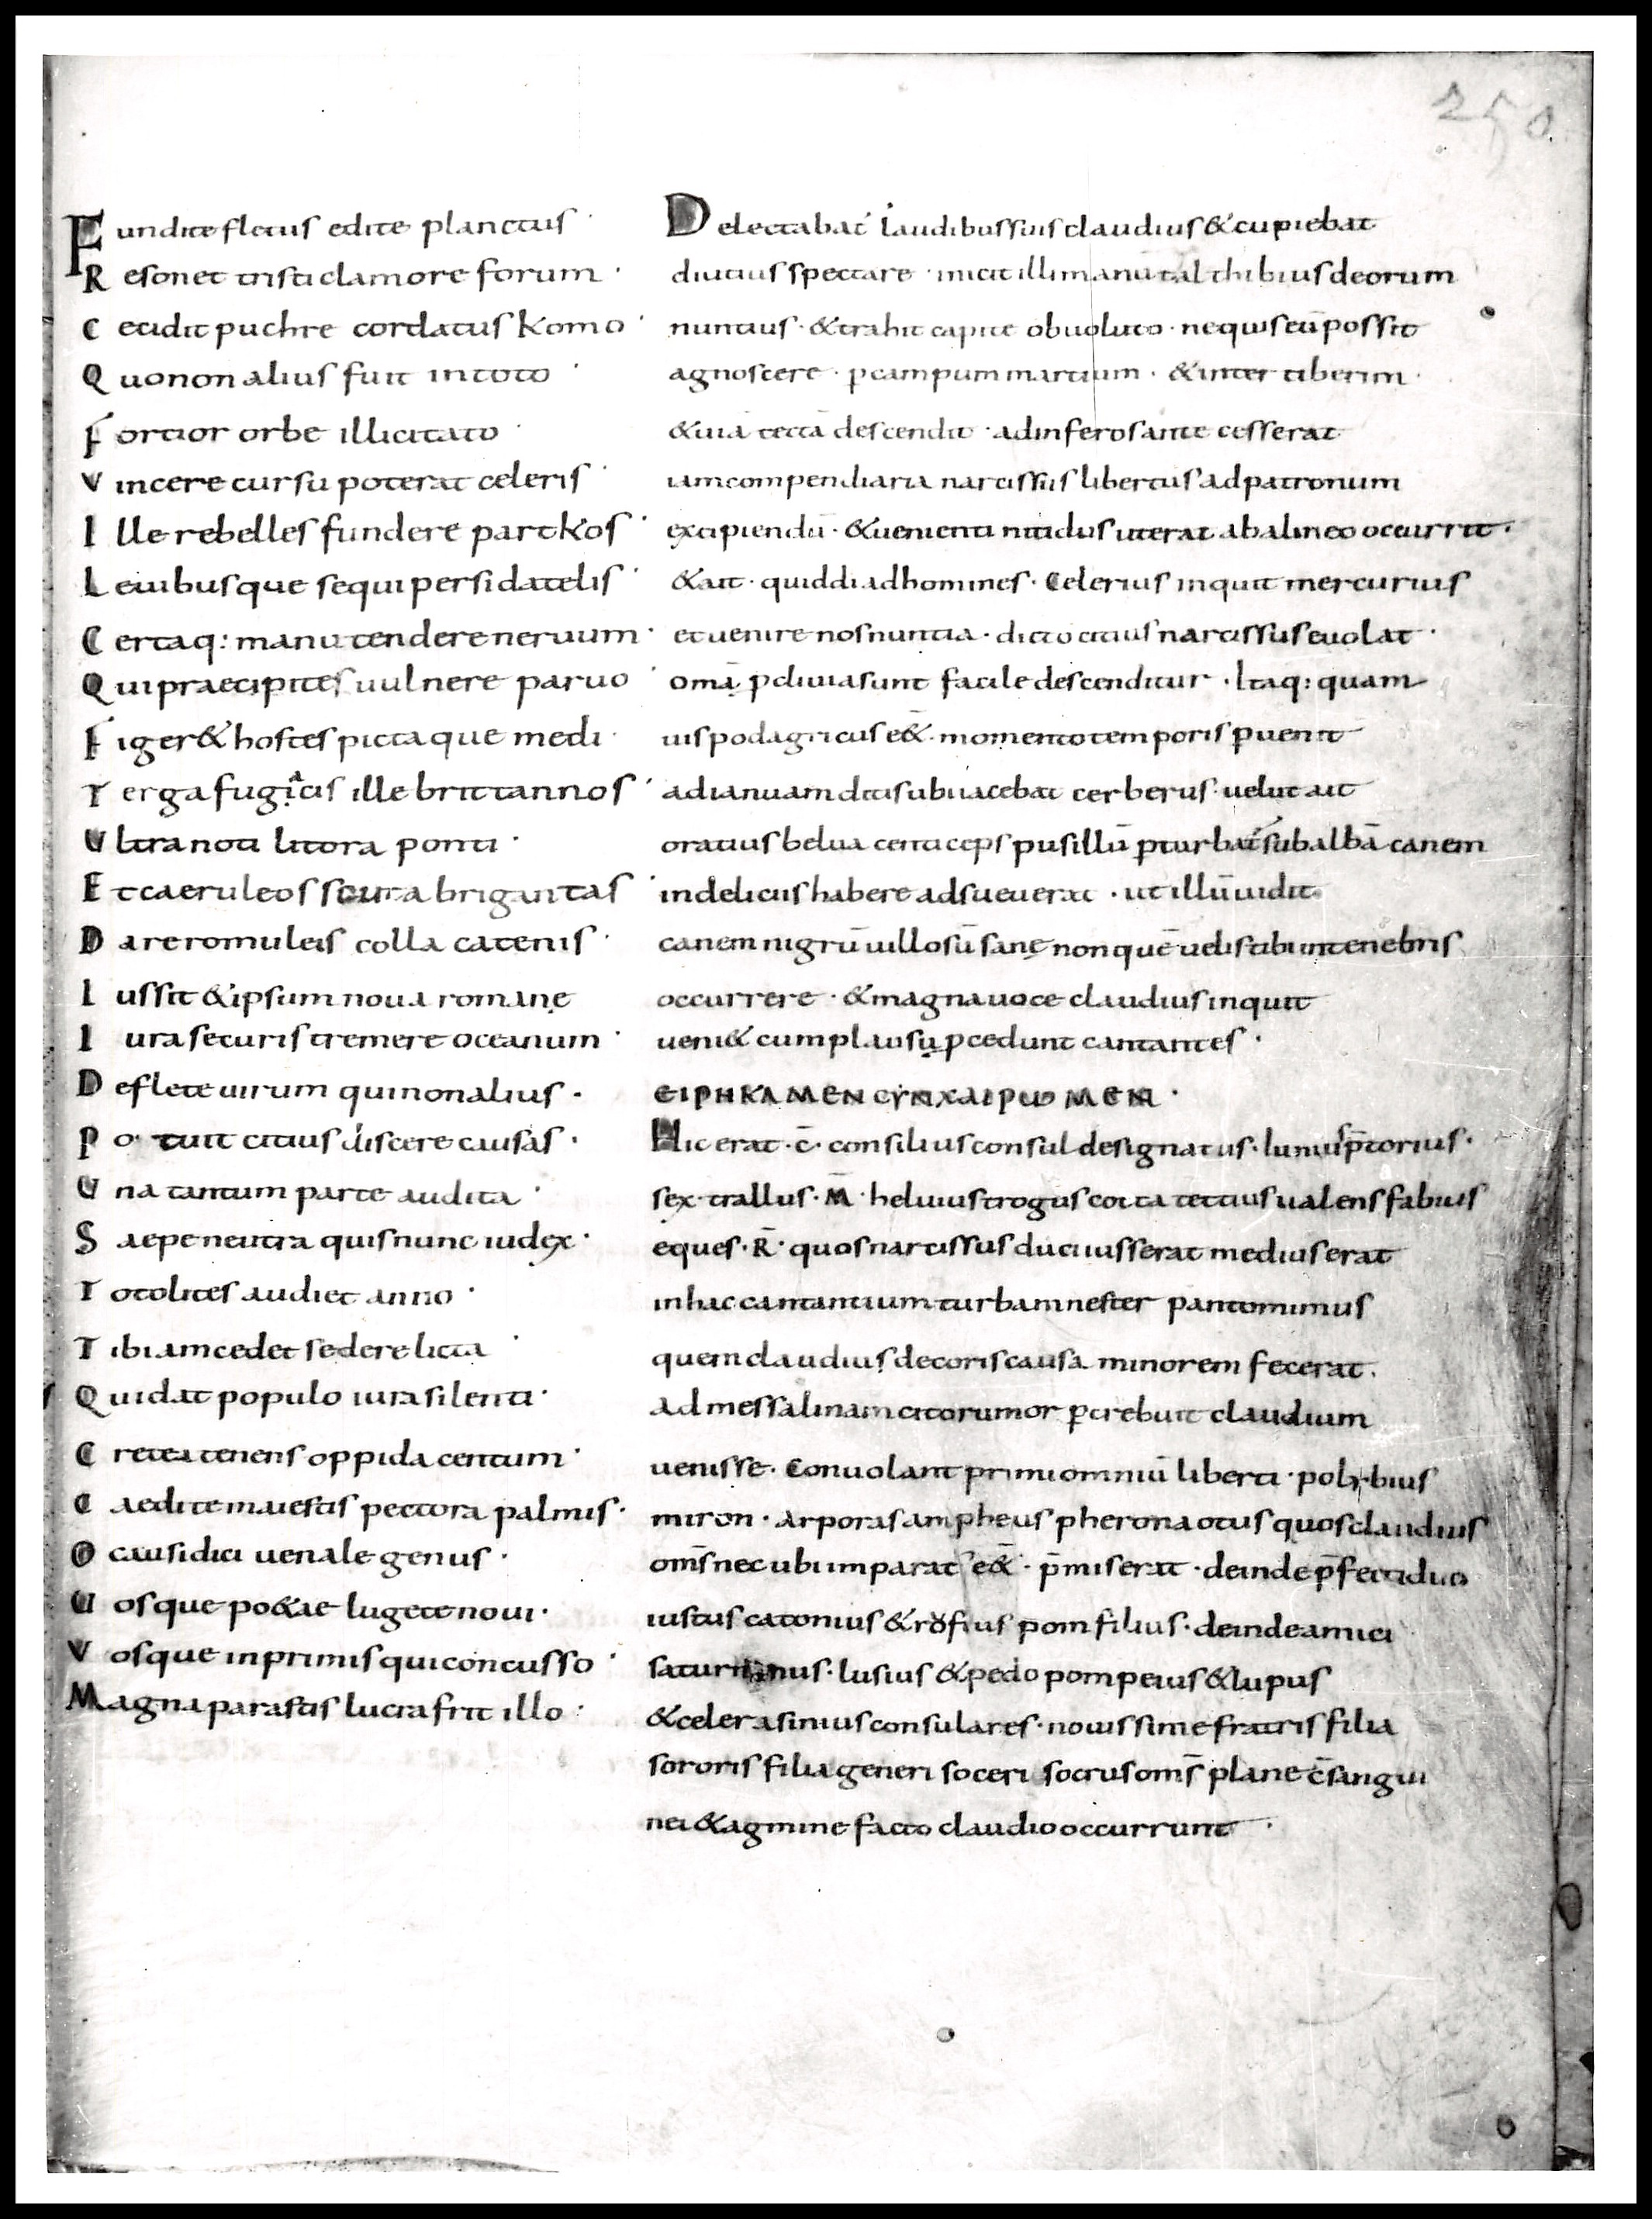 250
Fundite fletus edite planctus
Resonet tristi clamore forum
Cecidit puchre cordatus komo
Quo non alius fuit in toto
Fortior orbe ille citato
Vincere cursu poterat celeris
Ille rebelles fundere partkos
Leuibusque sequi persida telis
Certaq: manu tendere neruum
Qui praecipites uulnere paruo
Figer& hostes pictaque medi
Terga fugacis ille brittannos
Vltra noti litora ponti
Et caeruleos scuta brigantas
Dare romuleis colla catenis
Iussit & ipsum noua romanę
Iura securis tremere oceanum
Deflete uirum quo non alius
Potuit citius discere causas
Vna tantum parte audita
Saepe neutra quis nunc iudex
Toto lites audiet anno
Tibi iam cedet sede relicta
Qui dat populo iura silenti
Cretea tenens oppida centum
Caedite maestis pectora palmis
O causidici uenale genus
Vosque po&ae lugete noui
Vosque in primis qui concusso
Magna parastis lucra fritillo
Delectabat laudibus suis claudius & cupiebat
diutius spectare · inicit illi manū talthibius deorum
nuntius · & trahit capite obuoluto · nequis eū possit
agnoscere · p campum martium · & inter tiberim
& uiā tectā descendit · ad inferos ante cesserat
iam compendiaria narcissus libertus ad patronum
excipiendū · & uenienti nitidus ut erat a balineo occurrit ·
& ait · quid di ad homines · Celerius inquit mercurius
et uenire nos nuntia · dicto citius narcissus euolat ·
omā p cliuia sunt facile descenditur · Itaq: quam
uis podagricus e&̄ · momento temporis puenit
ad ianuam ditis ubi iacebat cerberus · uel ut ait
oratius belua centiceps pusillū pturbat subalbā canem
in delicus habere adsueuerat · ut illū uidit
canem nigrū uillosū sanę non quē uelis tibi in tenebris
occurrere · & magna uoce claudius inquit
ueni& cum plausu pcedunt cantantes ·
ΕΙΡΗΚΑΜΕΝ CΥΝΧΑΙΡωΜΕΝ ·
Hic erat · c̄ · consilius consul designatus · lunius p̄torius ·
sex · trallus · M̄ · heluius trogus cotta tettius ualens fabius
eques · R̄ · quos narcissus duci iusserat medius erat
in hac cantantium turba mnester pantomimus
quem claudius decoris causa minorem fecerat.
Ad messalinam cito rumor pcrebuit claudium
uenisse · Conuolant primi omniū liberti · polybius
miron · arporas ampheus pheronaotus quos claudius
om̄s necubi imparat' e&̄ · p̄miserat · deinde p̄fecti duo
iustus catonius & rofius pom filius · deinde amici
saturninus · lusius & pedo pompeius & lupus
& celer asinius consulares · nouissime fratris filia
sororis filia generi soceri socrus om̄s plane c̄sangui
nei & agmine facto claudio occurrunt ·